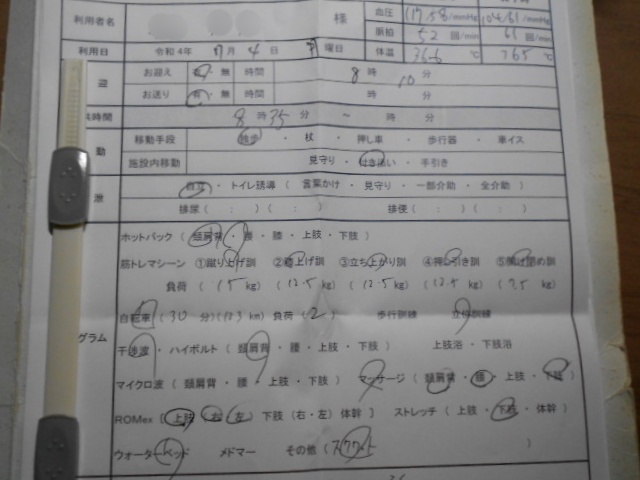 利用者名 様 血圧 117/58 mmHg 104/61 mmHg
脈拍 52 回/min 61 回/min
利用日 令和4年 7月 4日 曜日 体温 36.6 ℃ 36.5 ℃
迎 お迎え 有・無 時間 8時 10分
お送り 有・無 時間 時 分
供時間 8時35分 ～ 時 分
動 移動手段 独歩 ・ 杖 ・ 押し車 ・ 歩行器 ・ 車イス
施設内移動 見守り・付き添い・手引き
泄 自立・トイレ誘導（言葉かけ・見守り・一部介助・全介助）
排尿（ : ）（ : ） 排便（ : ）（ : ）
ホットパック（頚肩背・腰・膝・上肢・下肢）
筋トレマシーン ①蹴り上げ訓 ② 上げ訓 ③立ち上がり訓 ④押し引き訓 ⑤開け閉め訓
負荷 （15kg）（12.5kg）（12.5kg）（12.5kg）（7.5kg）
グラム 自転車（30分）（12.3km）負荷（2） 歩行訓練 立位訓練
干渉波・ハイボルト（頚肩背・腰・上肢・下肢） 上肢浴・下肢浴
マイクロ波（頚肩背・腰・上肢・下肢） マッサージ（頚肩背・腰・上肢・下肢）
ROMex［上肢（右・左）下肢（右・左）体幹］ ストレッチ（上肢・下肢・体幹）
ウォーターベッド メドマー その他（スクワット）